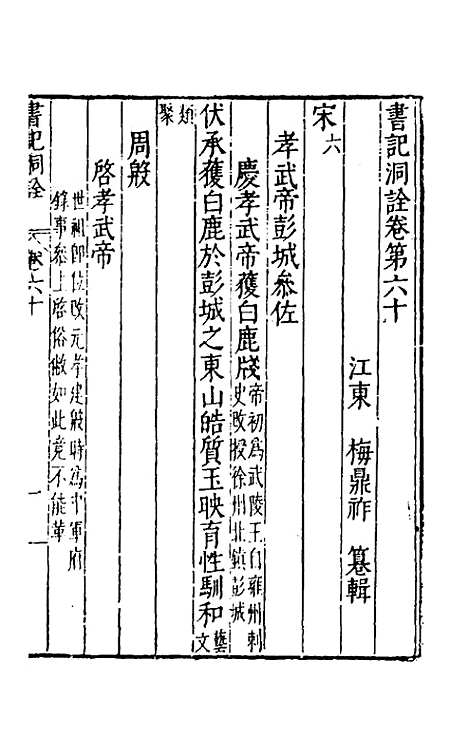 書記洞詮卷第六十
江東 梅鼎祚 纂輯
宋六
孝武帝彭城叅佐
慶孝武帝獲白鹿牋帝初爲武陵王自雍州刺史改授徐州北鎮彭城
伏承獲白鹿於彭城之東山皓質玉映育性馴和藝文
類聚
周殷
啓孝武帝
世祖即位改元孝建殷時爲中軍府
錄事叅上啓俗敝如此竟不能革
書記洞詮 卷六十 一